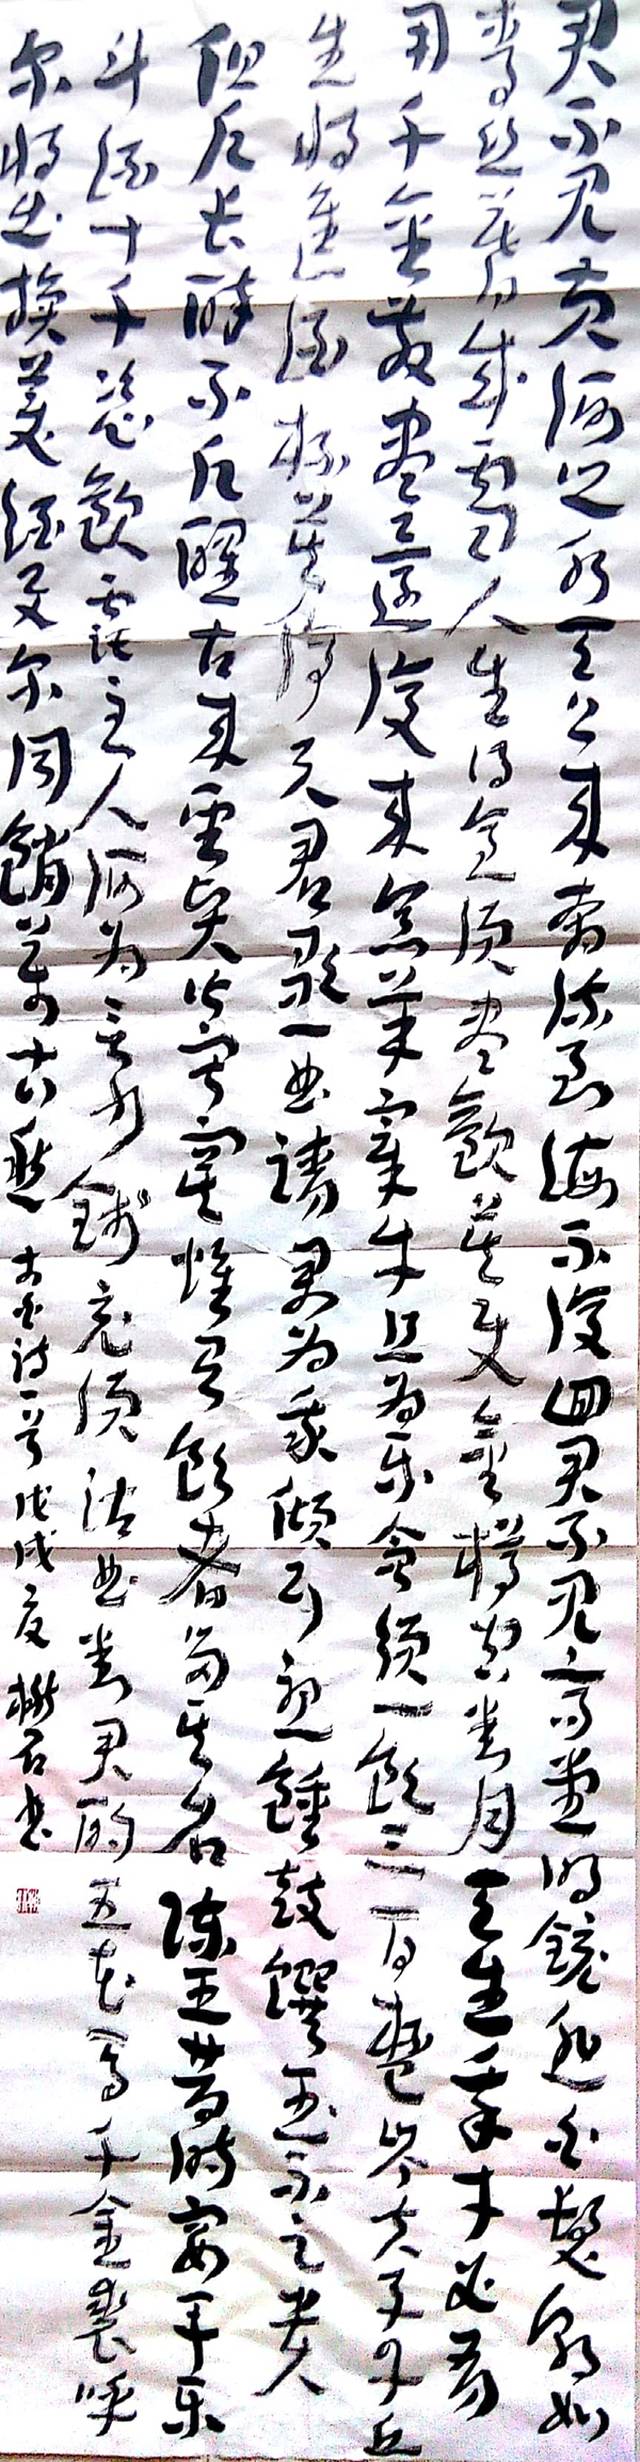 君不見黄河之水天上来奔流到海不復回君不見高堂明鏡悲白髮朝如
青丝暮成雪人生得意须尽歡莫使金樽空对月天生我才必有
用千金散尽还復来烹羊宰牛且为乐会须一飲三百杯岑夫子丹丘
生将進酒杯莫停与君歌一曲请君为我倾耳听鍾鼓饌玉不足贵
但願长醉不願醒古来聖贤皆寂寞惟有飲者留其名陈王昔时宴平乐
斗酒十千恣歡谑主人何为言少钱径须沽取对君酌五花马千金裘呼
尔将出换美酒与尔同銷万古愁 李白诗一首 戊戌夏 石书